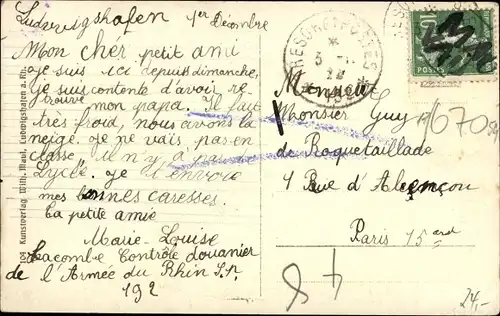 Ludwigshafen 1er Décembre
Mon chér petit ami
je suis ici depuis dimanche,
je suis contente d'avoir re
trouvé mon papa. Il fait
très froid, nous avons la
neige. Je ne vais pas en
classe il n'y a pas de
Lycée. Je t'envoie
mes bonnes caresses.
La petite amie
Marie-Louise
Lacombe Contrôle douanier
de l'Armée du Rhin S.P.
192
104 Kunstverlag Wilh. Manl, Ludwigshafen a. Rh.
TRESOR ET POSTES
3
22
POSTES
Monsieur
Monsier Guy
de Roquetaillade
1 Rue d'Alençon
Paris 15ard
670
48
24,-